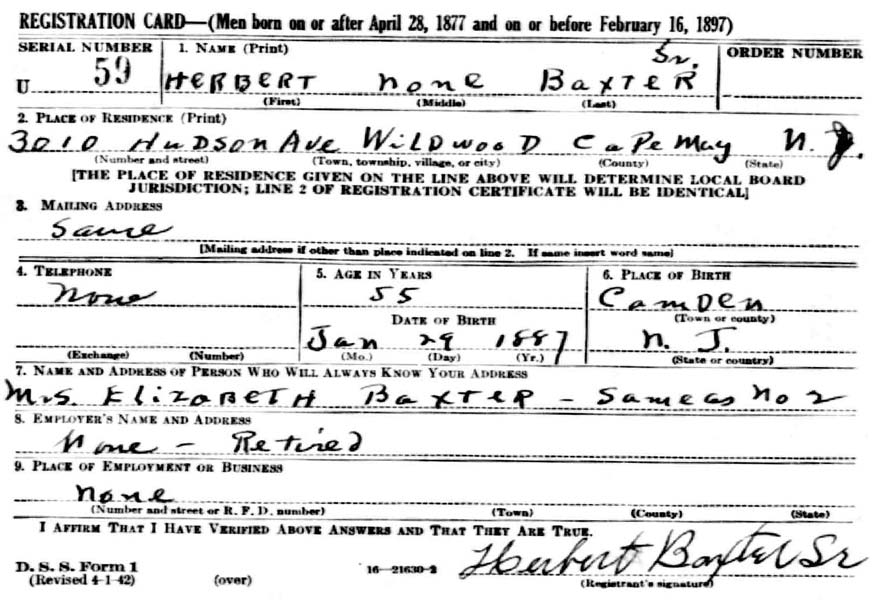 REGISTRATION CARD—(Men born on or after April 28, 1877 and on or before February 16, 1897)
SERIAL NUMBER 1. NAME (Print) ORDER NUMBER
U 59 HERBERT none BAXTER Sr.
(First) (Middle) (Last)
2. PLACE OF RESIDENCE (Print)
3010 HUDSON Ave WILDWOOD CAPE MAY N. J.
(Number and street) (Town, township, village, or city) (County) (State)
[THE PLACE OF RESIDENCE GIVEN ON THE LINE ABOVE WILL DETERMINE LOCAL BOARD
JURISDICTION; LINE 2 OF REGISTRATION CERTIFICATE WILL BE IDENTICAL]
3. MAILING ADDRESS
Same
[Mailing address if other than place indicated on line 2. If same insert word same]
4. TELEPHONE 5. AGE IN YEARS 6. PLACE OF BIRTH
None 55 CAMDEN
DATE OF BIRTH (Town or county)
Jan 29 1887 N. J.
(Exchange) (Number) (Mo.) (Day) (Yr.) (State or country)
7. NAME AND ADDRESS OF PERSON WHO WILL ALWAYS KNOW YOUR ADDRESS
MRS. ELIZABETH BAXTER – Same as No 2
8. EMPLOYER'S NAME AND ADDRESS
None – Retired
9. PLACE OF EMPLOYMENT OR BUSINESS
none
(Number and street or R. F. D. number) (Town) (County) (State)
I AFFIRM THAT I HAVE VERIFIED ABOVE ANSWERS AND THAT THEY ARE TRUE.
Herbert Baxter Sr
D. S. S. Form 1
(Revised 4-1-42) (over) 16—21630-2 (Registrant's signature)